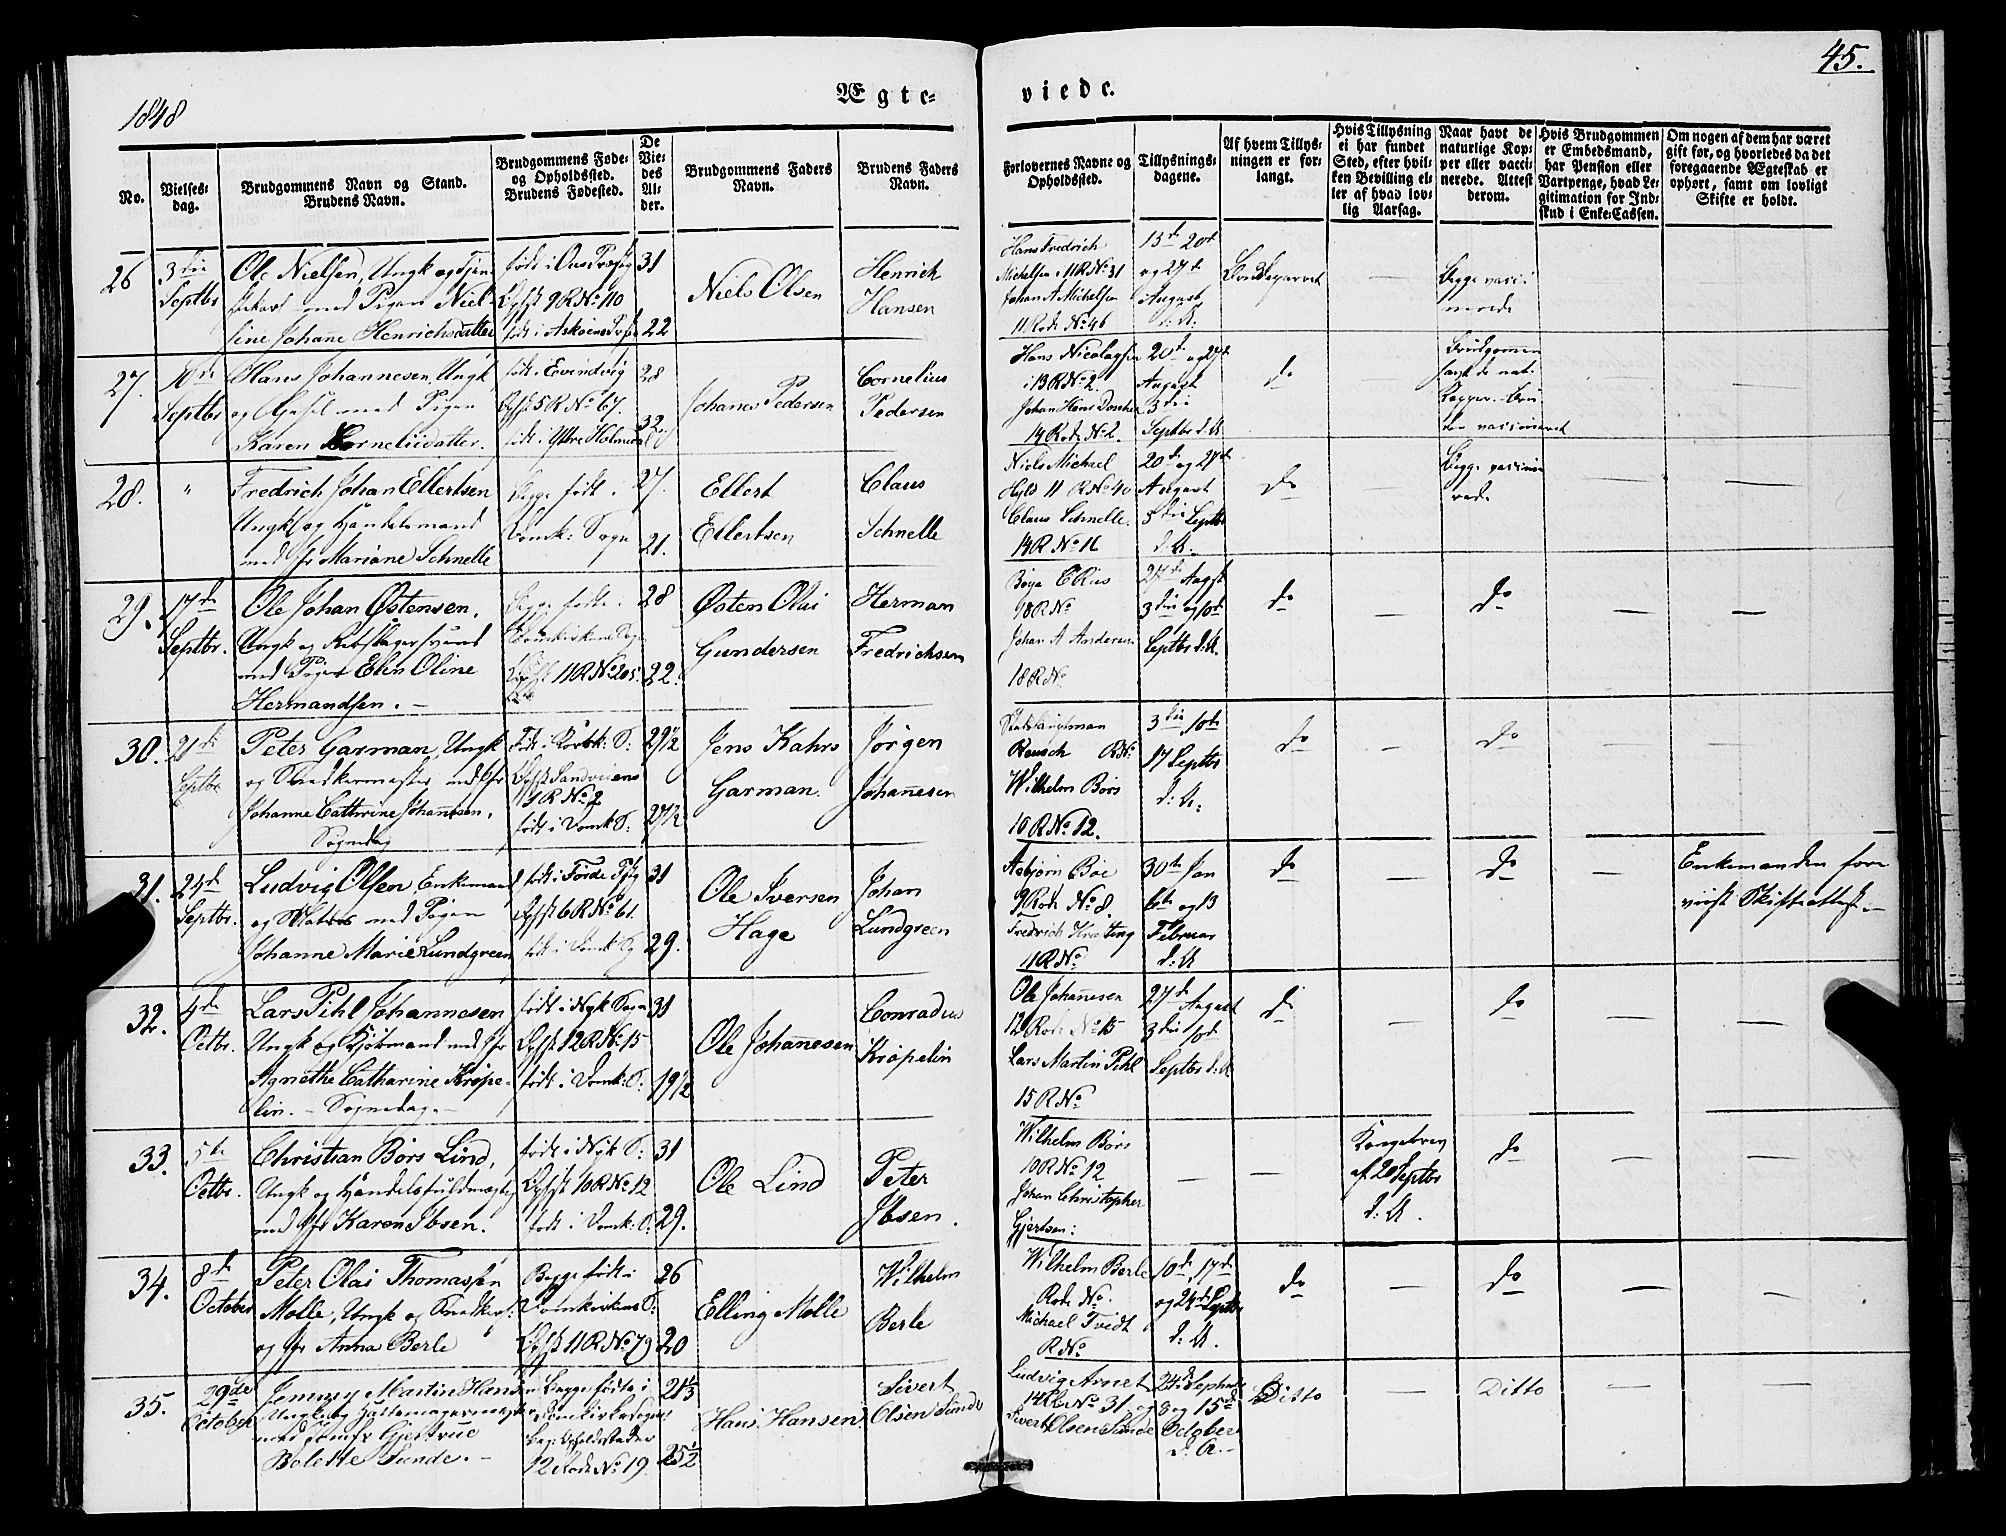 45.
1848
Ægte-
viede.
No.
Vielses-
dag.
Brudgommens Navn og Stand.
Brudens Navn.
Brudgommens Føde-
og Opholdssted.
Brudens Fødested.
De
Vie-
des
Al-
der.
Brudgommens Faders
Navn.
Brudens Faders
Navn.
Forlovernes Navne og
Opholdssted.
Tillysnings-
dagene.
Af hvem Tillys-
ningen er for-
langt.
Hvis Tillysning
ei har fundet
Sted, efter hvil-
ken Bevilling el-
ler af hvad lov-
lig Aarsag.
Naar havt de
naturlige Kop-
per eller vacci-
nerede. Attest
derom.
Hvis Brudgommen
er Embedsmand,
har Pension eller
Vartpenge, hvad Le-
gitimation for Ind-
skud i Enke-Cassen.
Om nogen af dem har været
gift før, og hvorledes da det
foregaaende Ægteskab er
ophørt, samt om lovligt
Skifte er holdt.
26
3die
Septbr
Ole Nielsen, Ungk og
med Pigen Niel-
sine Johanne Henrichsdatter
født i
Opst 9 R No 110
født i Askøens
31
22
Niels Olsen
Henrich
Hansen
Hans Fredrich
Michelsen i 11 R No 31
Johan A Michelsen
11 Rode No 46
13de 20de
og 27de
August
d: A:
Begge vacci
nerede
27.
10de
Septbr
Hans Johannesen, Ungk
og med Pigen
Karen Corneliidatter.
født i Evindvig
Opst 5 R No 67.
født i Yttre Holmedal
28
32
Johanes Pedersen
Cornelius
Pedersen
Hans Nicolaysen
i 13 R No 2.
Johan Hens
14 Rode No 2.
20de og 27de
August
3die
Septbr d. A
do
Brudgommen
havt de nat:
Kopper. Bru
den vaccineret
28.
"
Fredrich Johan Ellertsen
Ungk og Handelsmand
med Jfr Mariane Schnelle
Begge født i
Domk: Sogn
27.
21.
Ellert
Ellertsen
Claus
Schnelle
Niels Michael
Hyld 11 R No 40
Claus Schnelle.
14 R No 16
20de og 27de
August
3die Septbr
d. A.
do
Begge vacine
rede
29.
17de
Septbr.
Ole Johan Østensen.
Ungk og Rebslagersvend
med Pigen Elen Oline
Hermandsen. –
Begge fødte i
Domkirkens Sogn
Opst 11 R No 205.
28
22.
Østen Olai
Gundersen
Herman
Fredrichsen
18 R No
Johan A Andersen
18 R No
27de Augst
3die og 10de
Septbr d. A.
do
–
do
–
–
30.
21de
Septbr
Peter Garman, Ungk
og Snedkermester med Jfr
Johanne Cathrine Johannsen.
Søgnedag
Født i Korsk: S:
Opst Sandvigens
1 R No 2
født i Domk S:
29½
27½
Jens Kahrs
Garman.
Jørgen
Johanesen
Reusch R No
Wilhelm Børs
10 R No 12.
3die 10de
17 Septbr
d: A:
do
–
do
–
–
31.
24de
Septbr.
Ludvig Olsen, Enkemand
og med Pigen
Johanne Marie Lundgreen
født i Førde
Opst 6 R No 61.
født i Domk Sg
31
29.
Ole Iversen
Hage
Johan
Lundgreen
Asbjørn Boe
9 Rode No 8.
Fredrich
11 R No
30te Jan
6te og 13
Februar
d: A
do
–
do
–
Enkemanden fore
viist Skifteattest. –
32.
4de
Octbr.
Lars Pihl Johannesen
Ungk og Kjøbmand med Jfr
Agnethe Catharine Krøpe-
lin. – Søgnedag. –
født i Nyk Sogn
Opst 12 R No 15
født i Domk: S:
31
19½
Ole Johanesen
Conradus
Krøpelin
Ole Johanesen
12 Rode No 15
Lars Martin Pihl
15 R No
27de August
3die 10de
Septbr d: A
do
–
do
–
–
33.
5te
Octbr.
Christian Børs Lind,
Ungk og Handelsfuldmægtig
med Jfr Karen Ibsen.
født i Nyk S:
Opst 10 R No 12
født i Domk: S:
31
29.
Ole Lind
Peter
Ibsen.
Wilhelm Børs
10 R No 12
Johan Christopher
Gjertsen:
–
–
Kongebrev
af 20 Septbr
d: A.
do
–
–
34.
8de
October
Peter Olai Thomassen
Mølle, Ungk og Snedker
og Jfr Anna Berle
Begge født i
Domkirkens S:
Opst 11 R No 79
26
20
Elling Mølle
Wilhelm
Berle
Wilhelm Berle
Rode No.
Michael Tvedt
R No
10de, 17de
og 24de Septbr
d: A.
do
–
do
–
–
35.
29de
October
Martin Hansen
Ungk og Hattemagermester
med Jomfr Gjertrue
Bolette Sunde. –
Begge fødte i
Domkirkesogn
Beg: Opholdssteder
12 Rode No 19.
21⅓
25½
Hans Hansen
Sivert
Olsen Sunde
Ludvig
14 R No 31 og
Sivert Olsen Sunde
24de Septbr
8 og 15de
October
d. A. –
Ditto
–
Ditto
–
–